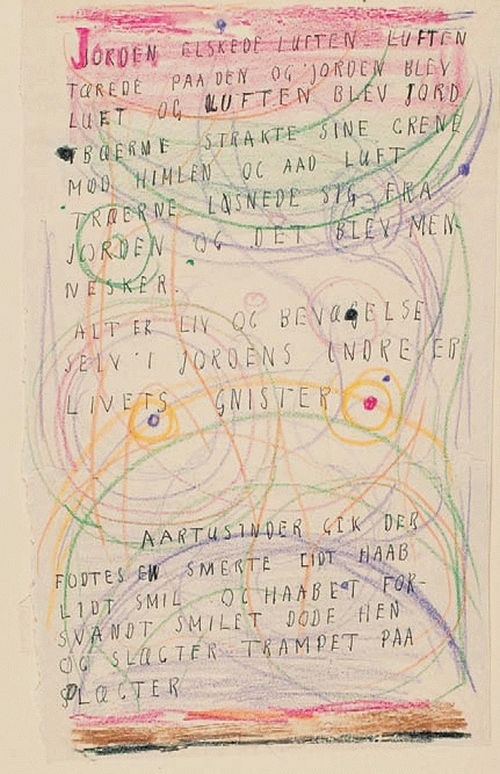 JORDEN ELSKEDE LUFTEN LUFTEN
TÆREDE PAA DEN OG JORDEN BLEV
LUFT OG LUFTEN BLEV JORD
TRÆERNE STRAKTE SINE GRENE
MOD HIMLEN OG AAD LUFT
TRÆERNE LØSNEDE SIG FRA
JORDEN OG DET BLEV MEN
NESKER.
ALT ER LIV OG BEVÆGELSE
SELV I JORDENS INDRE ER
LIVETS GNISTER
AARTUSINDER GIK DER
FØDTES EN SMERTE LIDT HAAB
LIDT SMIL OG HAABET FOR-
SVANDT SMILET DØDE HEN
OG SLÆGTER TRAMPET PAA
SLÆGTER